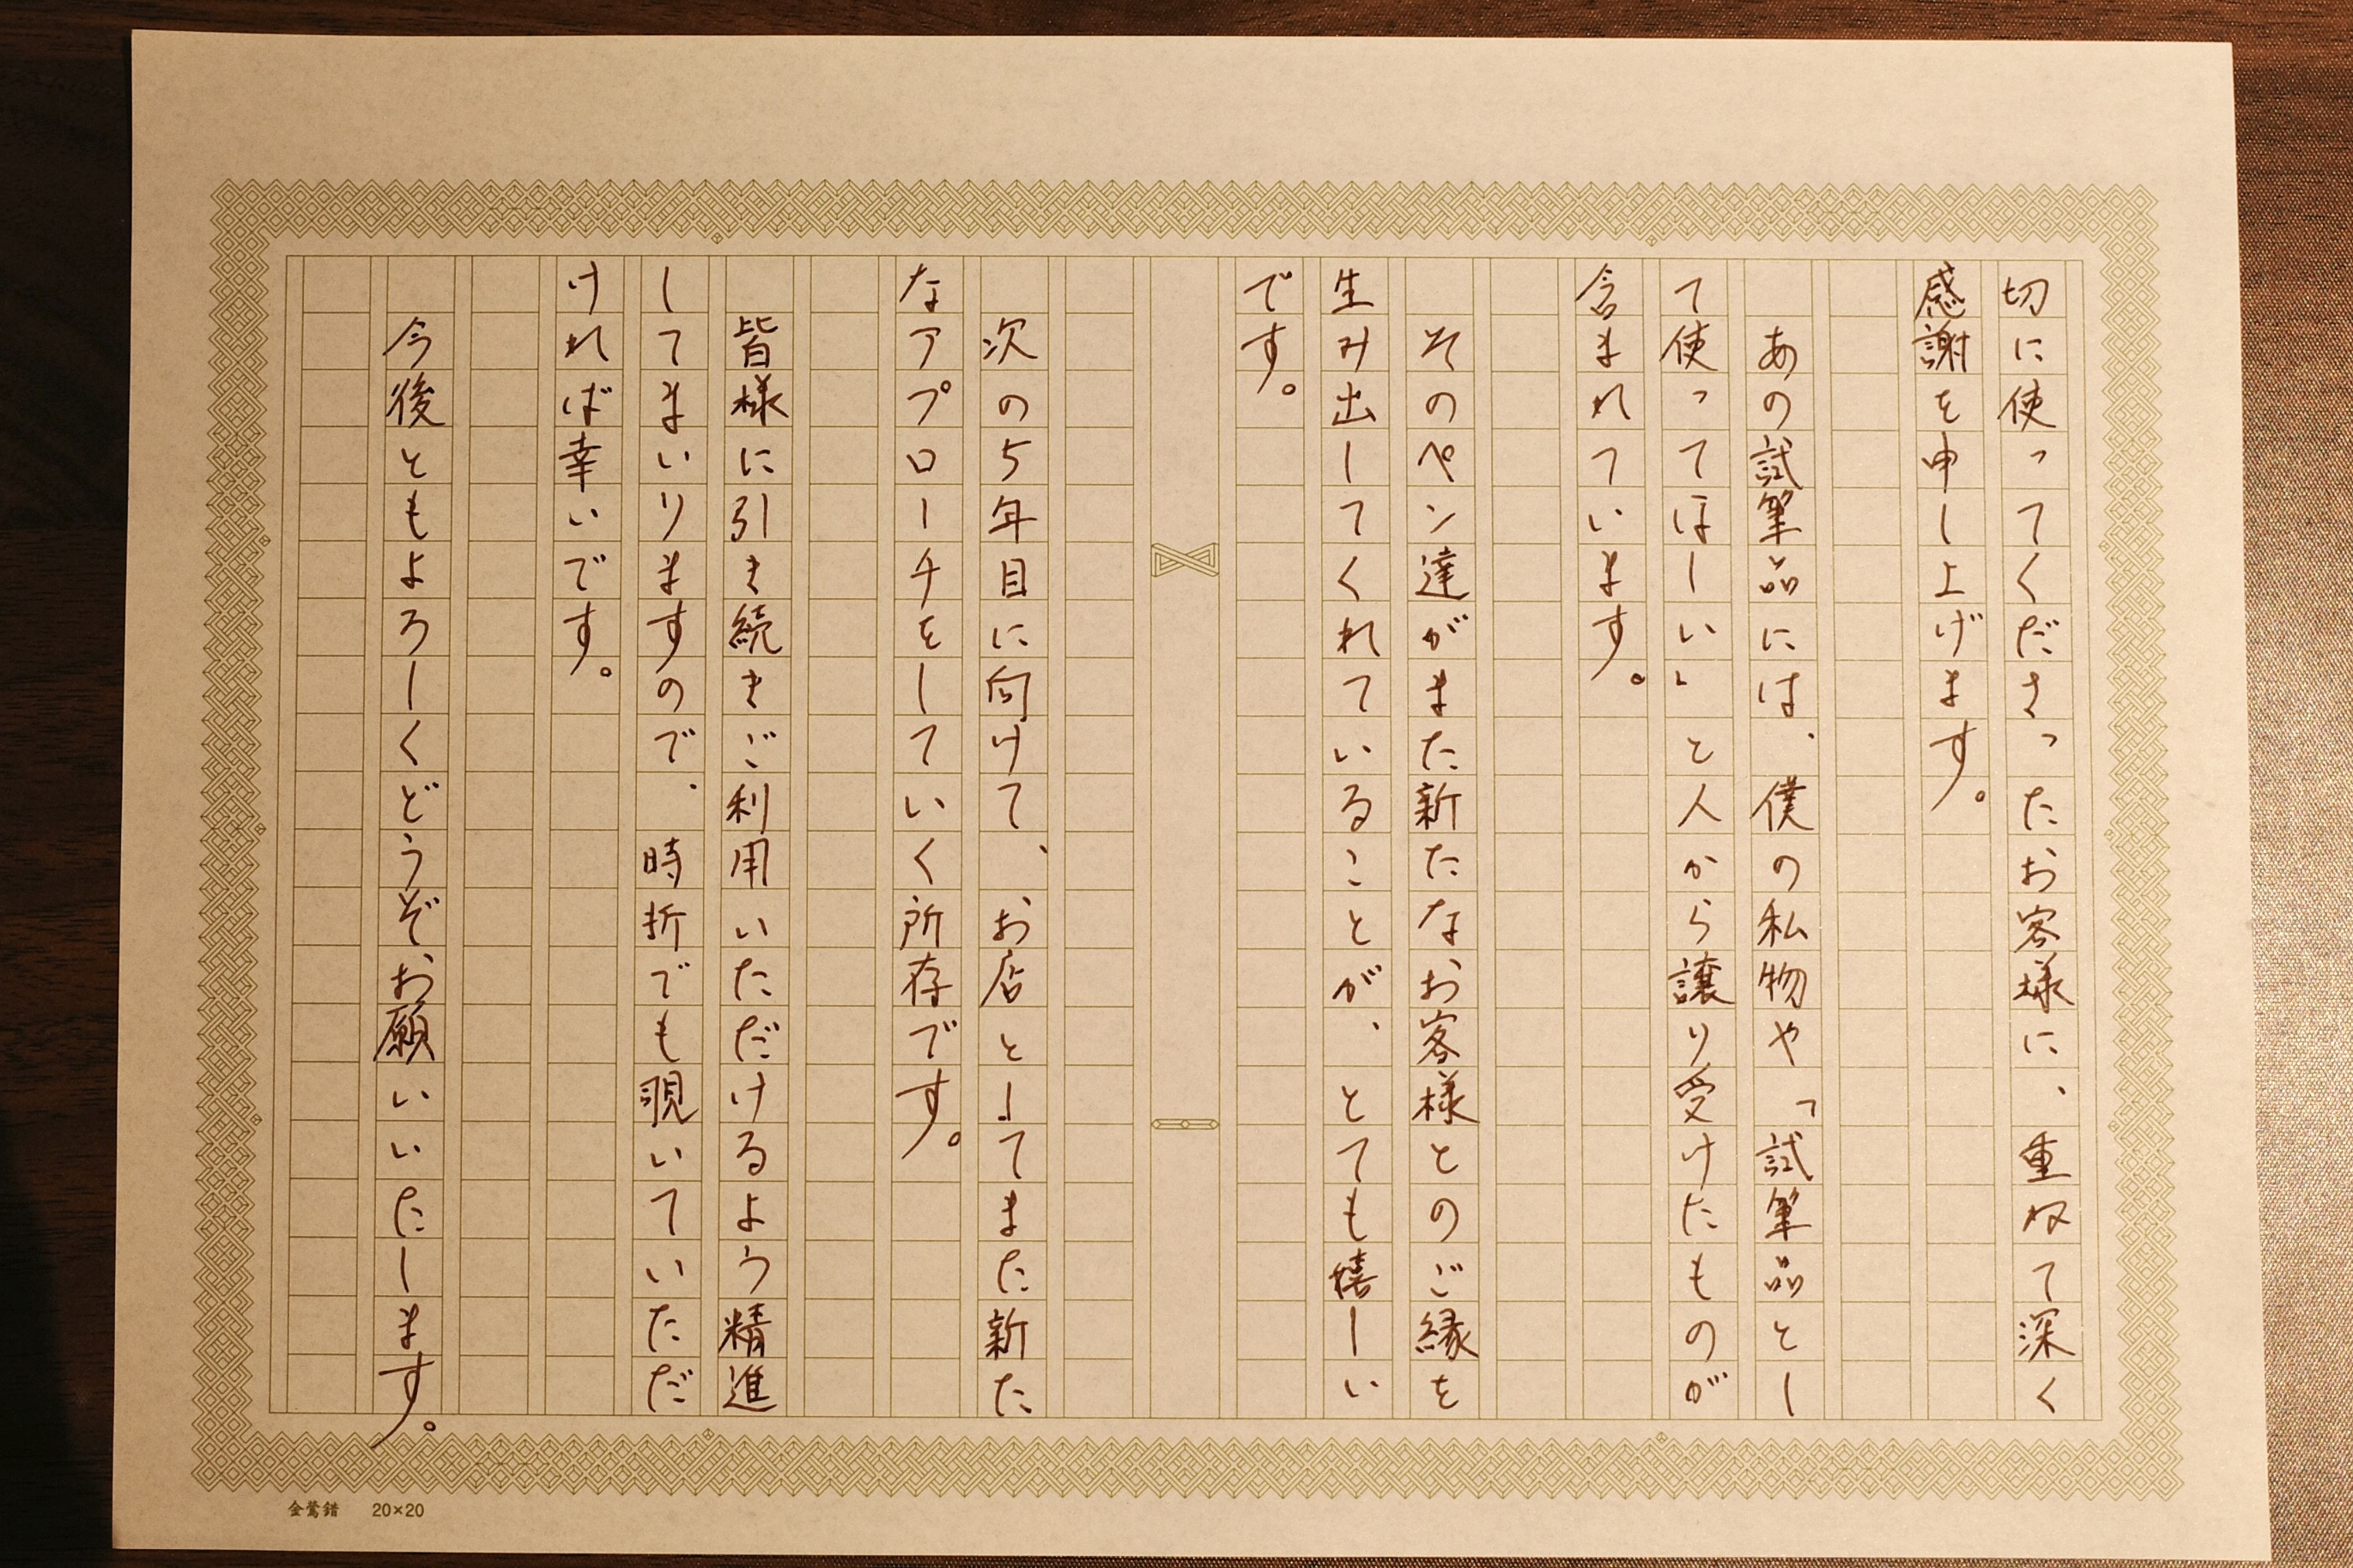 切に使ってくださったお客様に、重ねて深く
感謝を申し上げます。
あの試筆品には、僕の私物や「試筆品とし
て使ってほしい」と人から譲り受けたものが
含まれています。
そのペン達がまた新たなお客様とのご縁を
生み出してくれていることが、とても嬉しい
です。
次の5年目に向けて、お店としてまた新た
なアプローチをしていく所存です。
皆様に引き続きご利用いただけるよう精進
してまいりますので、時折でも覗いていただ
ければ幸いです。
今後ともよろしくどうぞお願いいたします。
金鶯錯 20×20